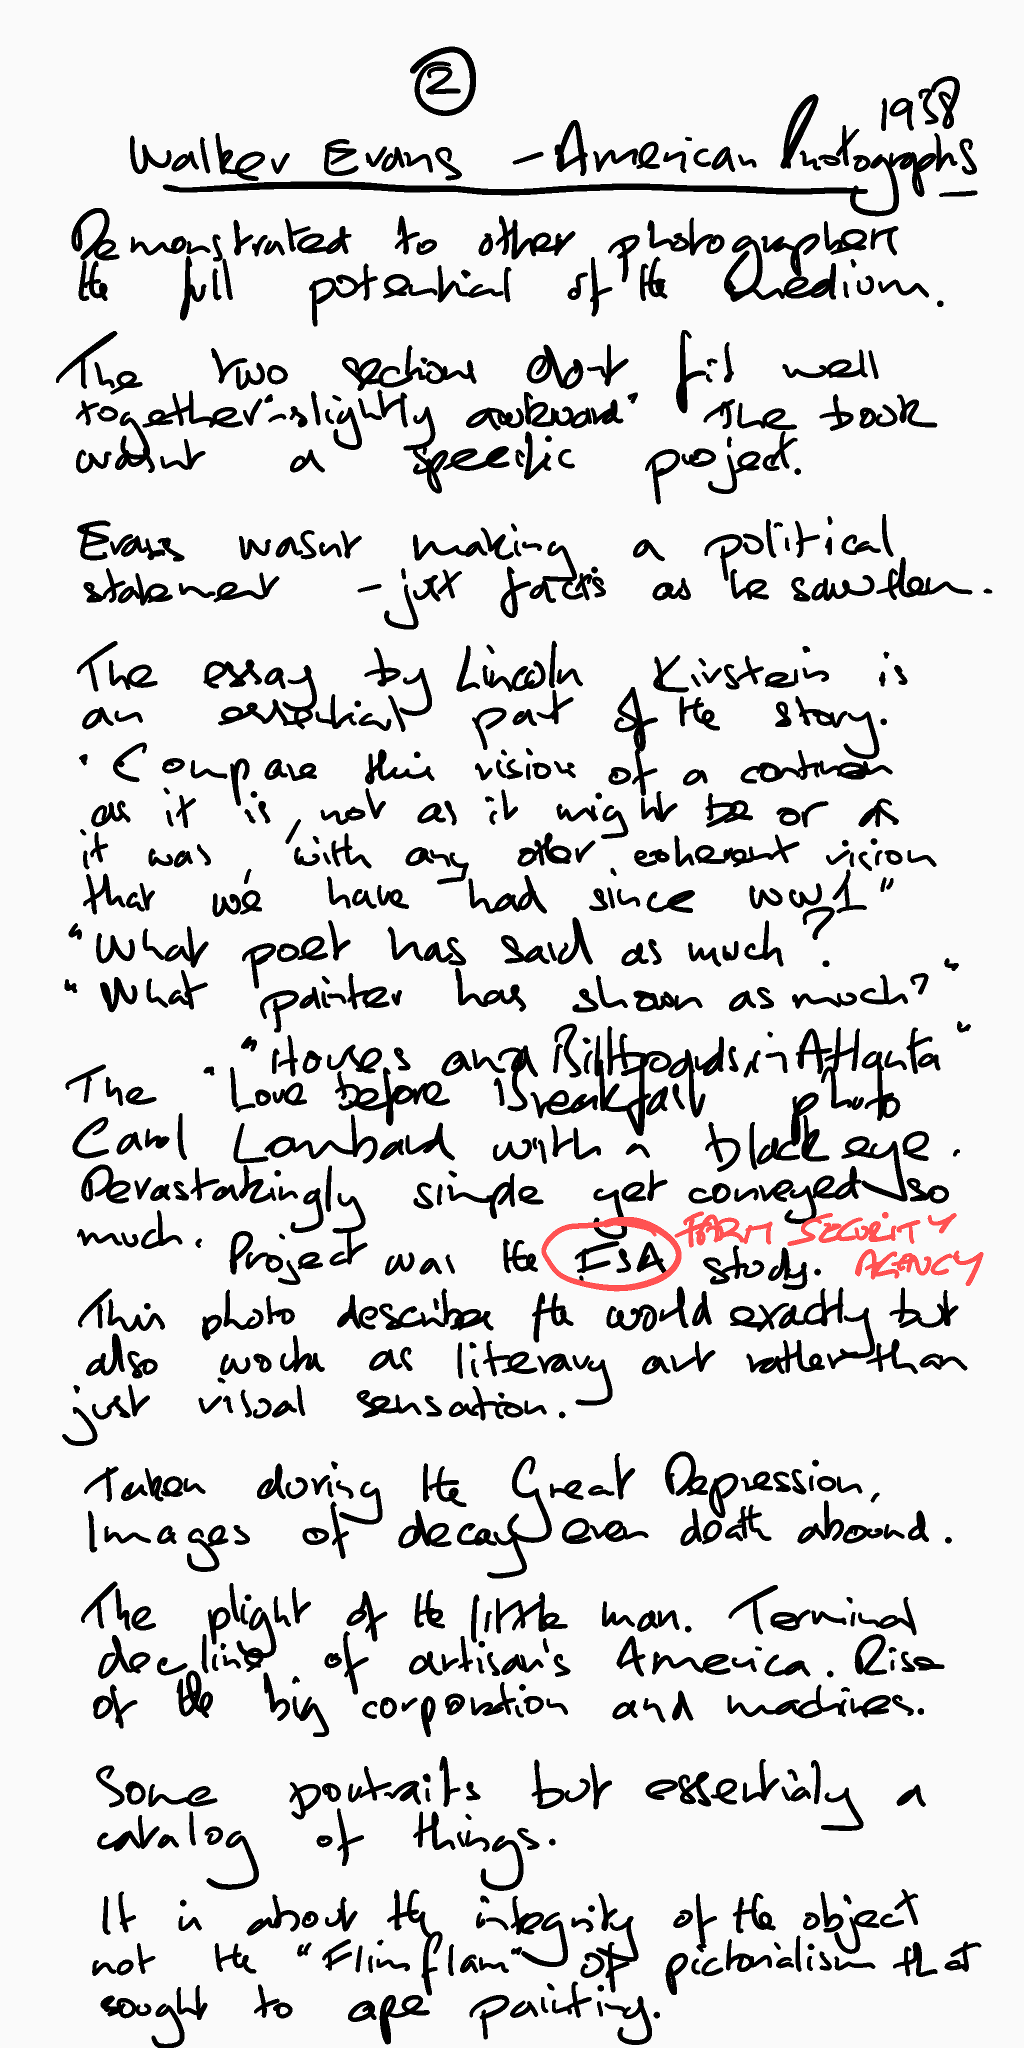 2
1938
Walker Evans - American Photographs
Demonstrated to other photographers
the full potential of the medium.
The two sections dont fit well
together "slightly awkward" The book
wasnt a specific project.
Evans wasnt making a political
statement - just facts as he saw them.
The essay by Lincoln Kirstein is
an essential part of the story.
" Compare this vision of a continen
as it is, not as it might be or as
it was, with any other coherent vision
that we have had since WW1"
"What poet has said as much?
"What painter has shown as much?"
"Houses and Billboards in Atlanta"
The "Love before Breakfast photo
Carol Lombard with a black eye.
Devastakingly simple yet conveyed so
much. Project was the FSA study. FARM SECURITY AGENCY
This photo describes the world exactly but
also works as literary art rather than
just visual sensation.
Taken during the Great Depression,
Images of decay even death abound.
The plight of the little man. Terminal
decline of artisan's America. Rise
of the big corporation and machines.
Some portraits but essentialy a
catalog of things.
It is about the integrity of the object
not the "Flimflam" of pictorialism that
sought to ape painting.